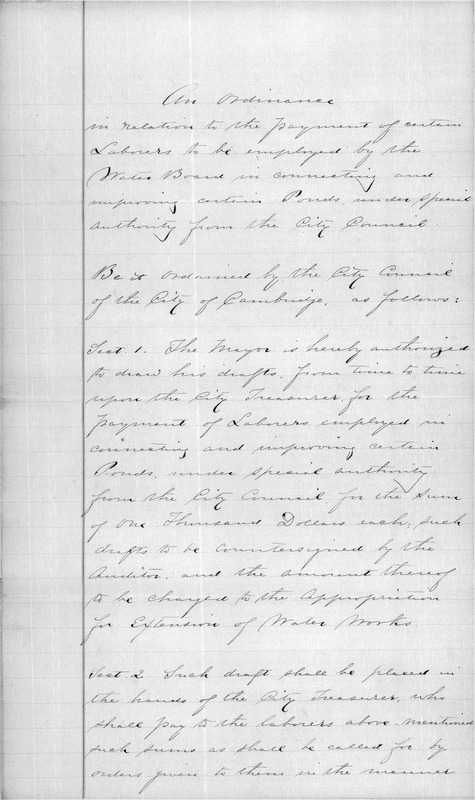 An Ordinance
in relation to the payment of certain
Laborers to be employed by the
Water Board in connecting and
improving certain Ponds, under special
authority from the City Council.
Be it ordained by the City Council
of the City of Cambridge, as follows:
Sect. 1. The Mayor is hereby authorized
to draw his drafts, from time to time
upon the City Treasurer, for the
payment of Laborers employed in
connecting and improving certain
Ponds, under special authority
from the City Council, for the sum
of One Thousand Dollars each, such
drafts to be countersigned by the
Auditor, and the amount thereof
to be charged to the Appropriation
for Extension of Water Works.
Sect. 2 Such draft shall be placed in
the hands of the City Treasurer, who
shall pay to the laborers above-mentioned
such sums as shall be called for by
orders given to them in the manner